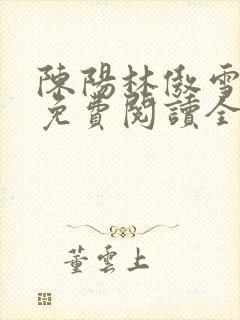 陳陽林傲雪
免費閱讀全
董雲上